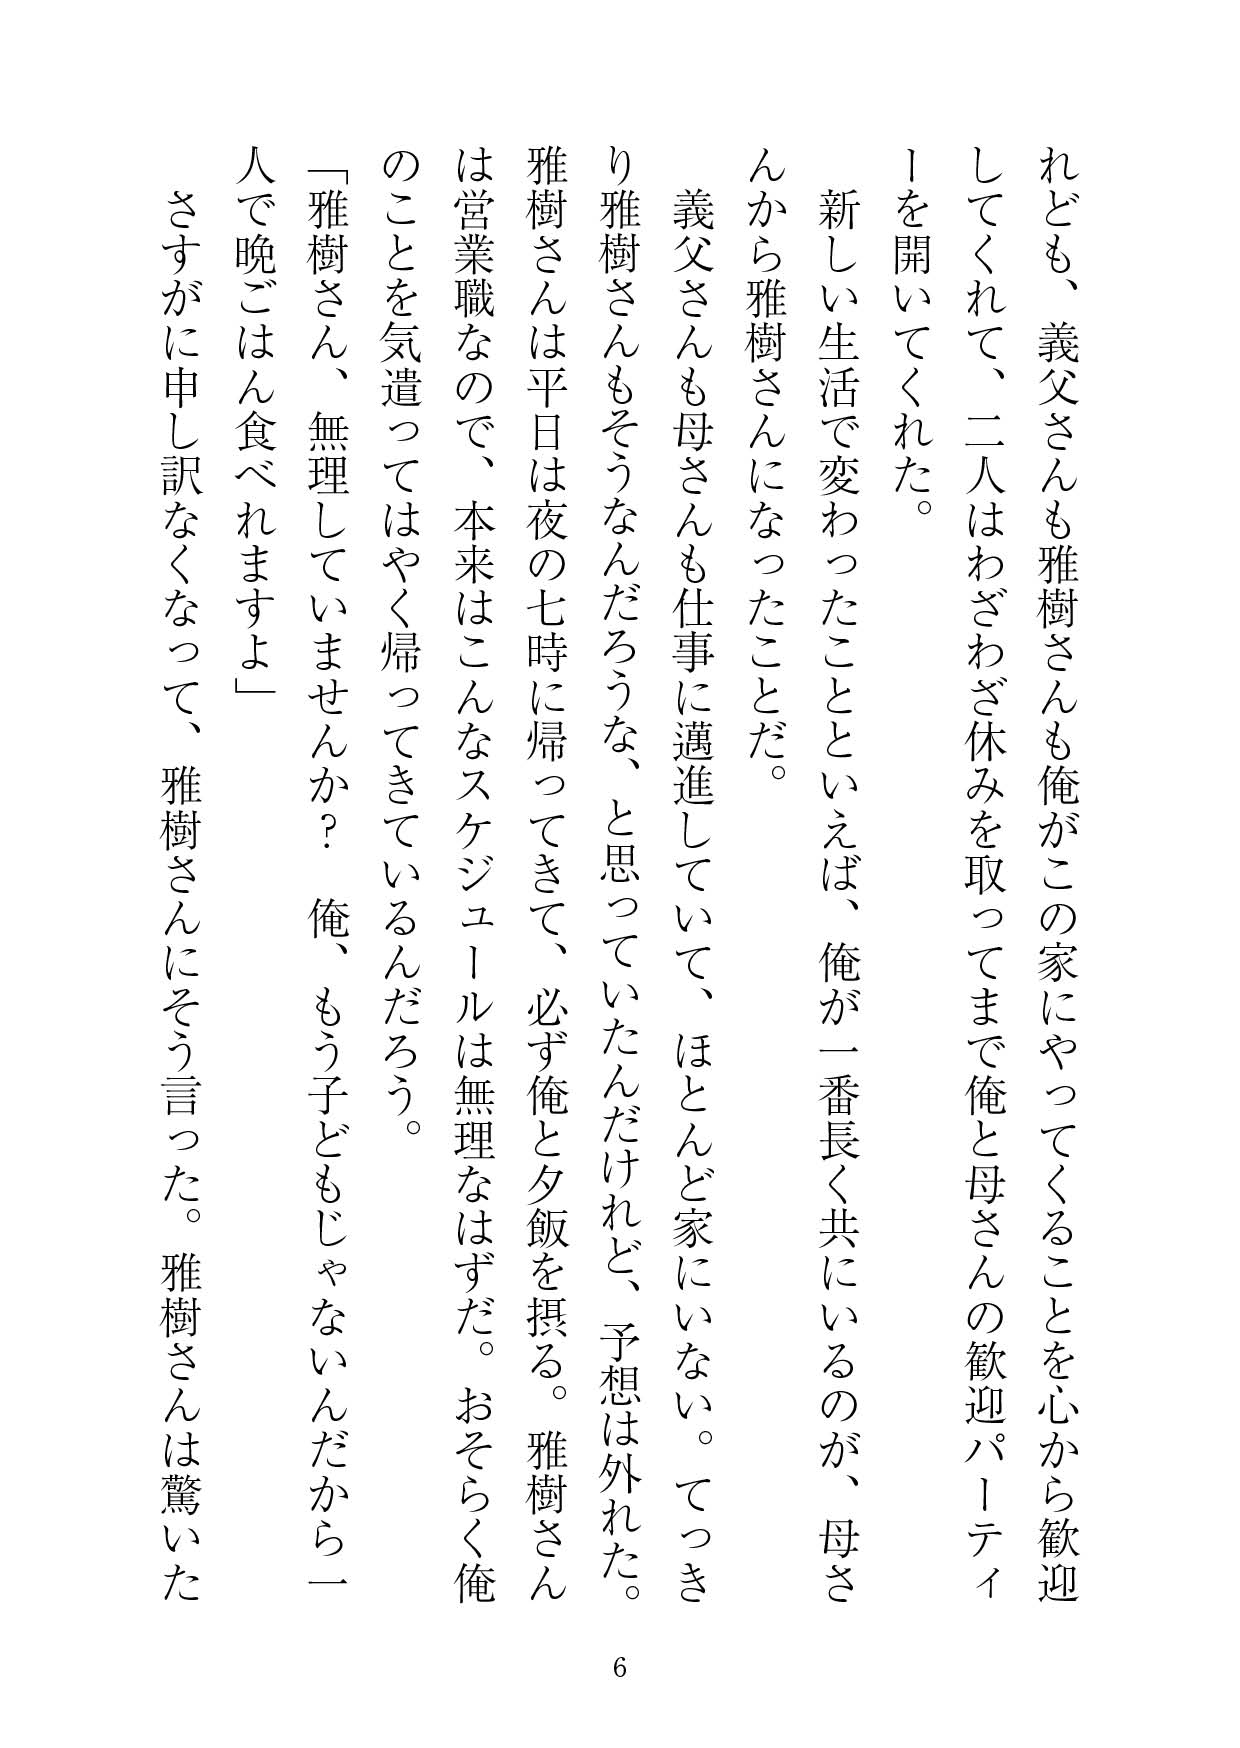 れども、義父さんも雅樹さんも俺がこの家にやってくることを心から歓迎
してくれて、二人はわざわざ休みを取ってまで俺と母さんの歓迎パーティ
ーを開いてくれた。
　新しい生活で変わったことといえば、俺が一番長く共にいるのが、母さ
んから雅樹さんになったことだ。
　義父さんも母さんも仕事に邁進していて、ほとんど家にいない。てっき
り雅樹さんもそうなんだろうな、と思っていたんだけれど、予想は外れた。
雅樹さんは平日は夜の七時に帰ってきて、必ず俺と夕飯を摂る。雅樹さん
は営業職なので、本来はこんなスケジュールは無理なはずだ。おそらく俺
のことを気遣ってはやく帰ってきているんだろう。
「雅樹さん、無理していませんか？　俺、もう子どもじゃないんだから一
人で晩ごはん食べれますよ」
　さすがに申し訳なくなって、雅樹さんにそう言った。雅樹さんは驚いた
6